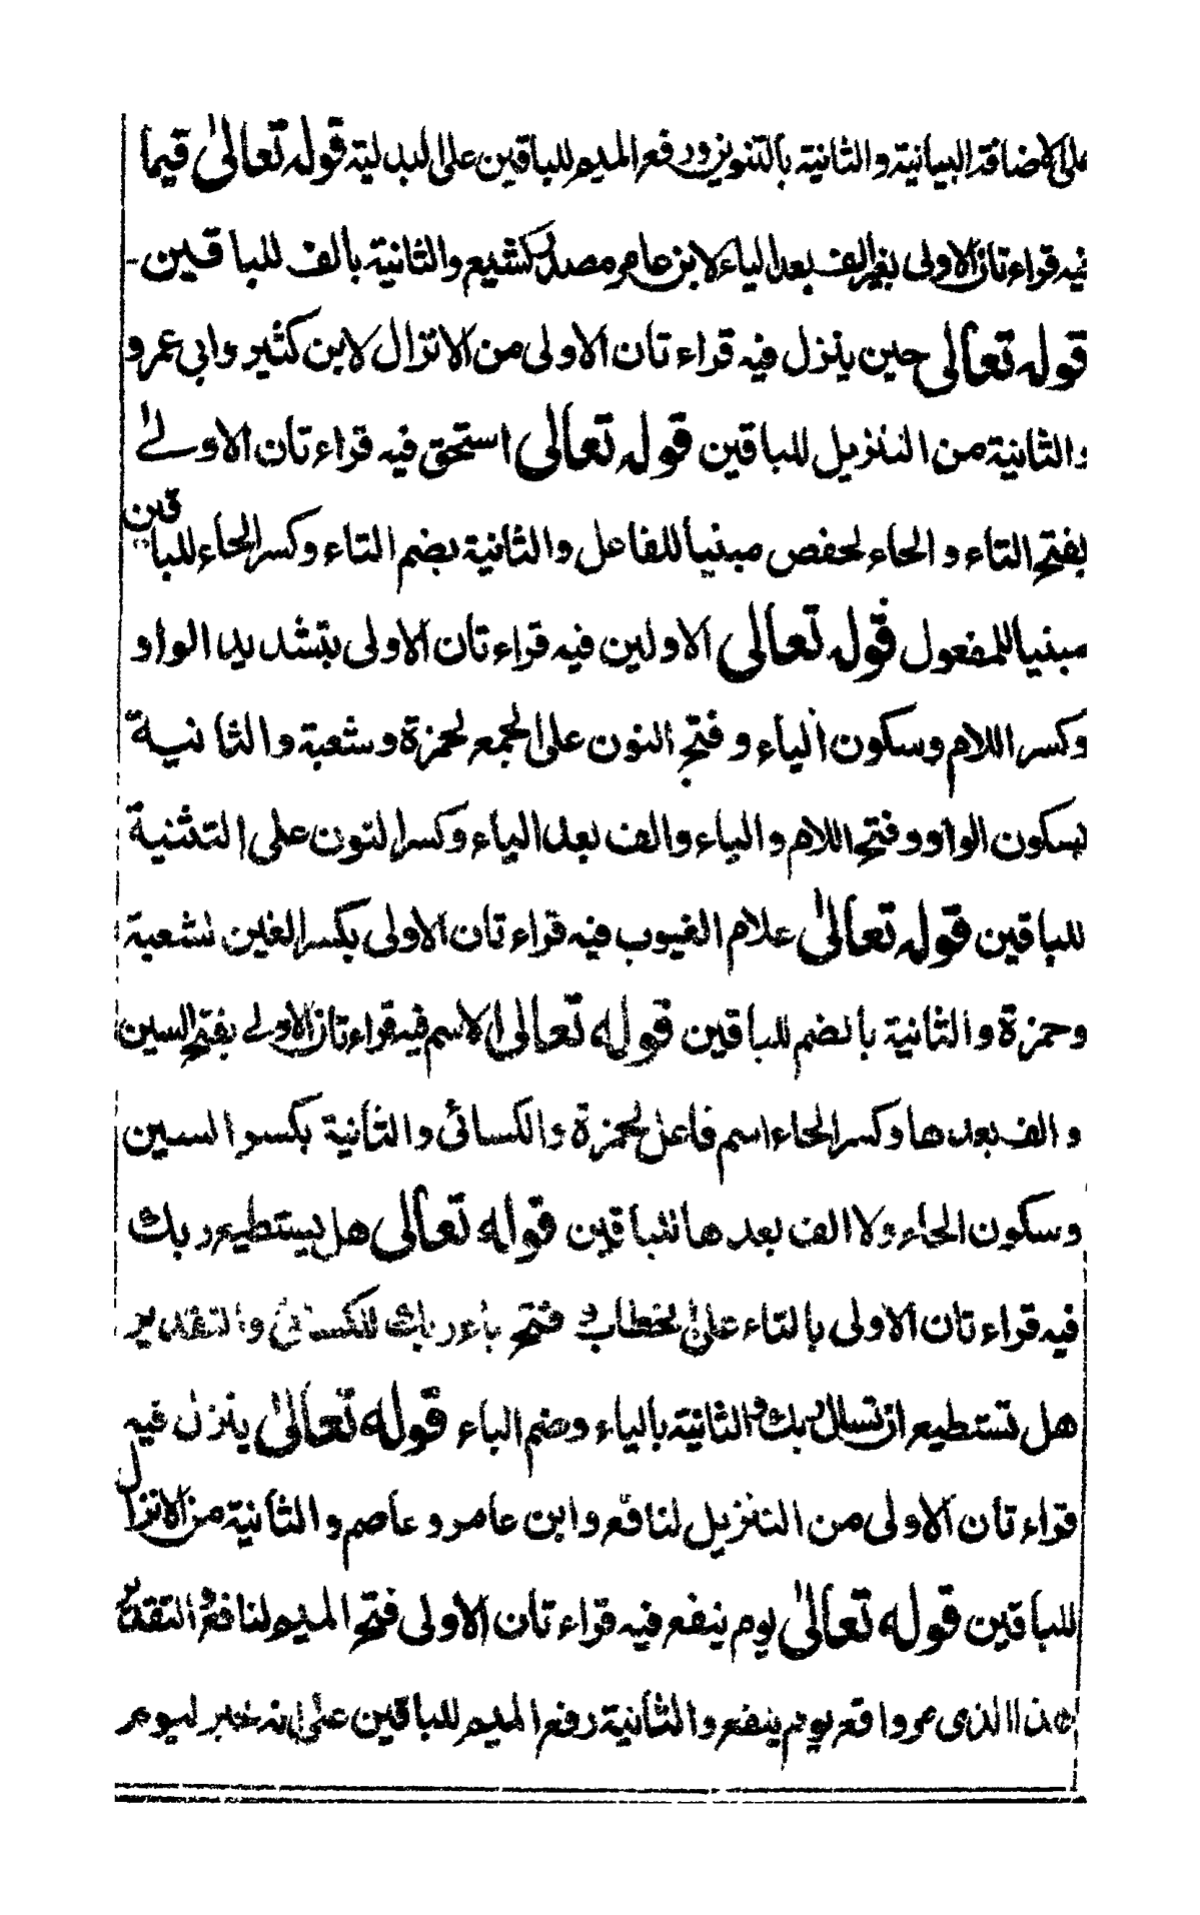 على الاضافة البيانية والثانية بالتنوين ورفع الميم للباقين على البدلية قوله تعالىٰ قيما
فيه قراءتان الاولى بغير الف بعد الياء لابن عامر مصدر كشيع والثانية بالف للباقين
قوله تعالى حين ينزل فيه قراءتان الاولى من الانزال لابن كثير وابي عمرو
والثانية من التنزيل للباقين قوله تعالى استحق فيه قراءتان الاولےٰ
بفتح التاء والحاء لحفص مبنيا للفاعل والثانية بضم التاء وكسر الحاء للباقين
مبنيا للمفعول قوله تعالى الاولين فيه قراءتان الاولى بتشديد الواو
وكسر اللام وسكون الياء وفتح النون على الجمع لحمزة وشعبة والثانية
بسكون الواو وفتح اللام والياء والف بعد الياء وكسر النون على التثنية
للباقين قوله تعالىٰ علام الغيوب فيه قراءتان الاولى بكسر الغين لشعبة
وحمزة والثانية بالضم للباقين قوله تعالى الاسم فيه قراءتان الاولے بفتح السين
والف بعدها وكسر الحاء اسم فاعل لحمزة والكسائى والثانية بكسر السين
وسكون الحاء ولا الف بعدها للباقين قوله تعالى هل يستطيع ربك
فيه قراءتان الاولى بالتاء على الخطاب وفتح باء ربك للكسائى والتقدير
هل تستطيع ان تسال ربك والثانية بالياء وضم الباء قوله تعالىٰ ينزل فيه
قراءتان الاولى من التنزيل لنافع وابن عامر وعاصم والثانية من الانزال
للباقين قوله تعالىٰ يوم ينفع فيه قراءتان الاولى فتح الميم لنافع والتقدير
هذا الذى مر واقع يوم ينفع والثانية رفع الميم للباقين على انه خبر ليوم